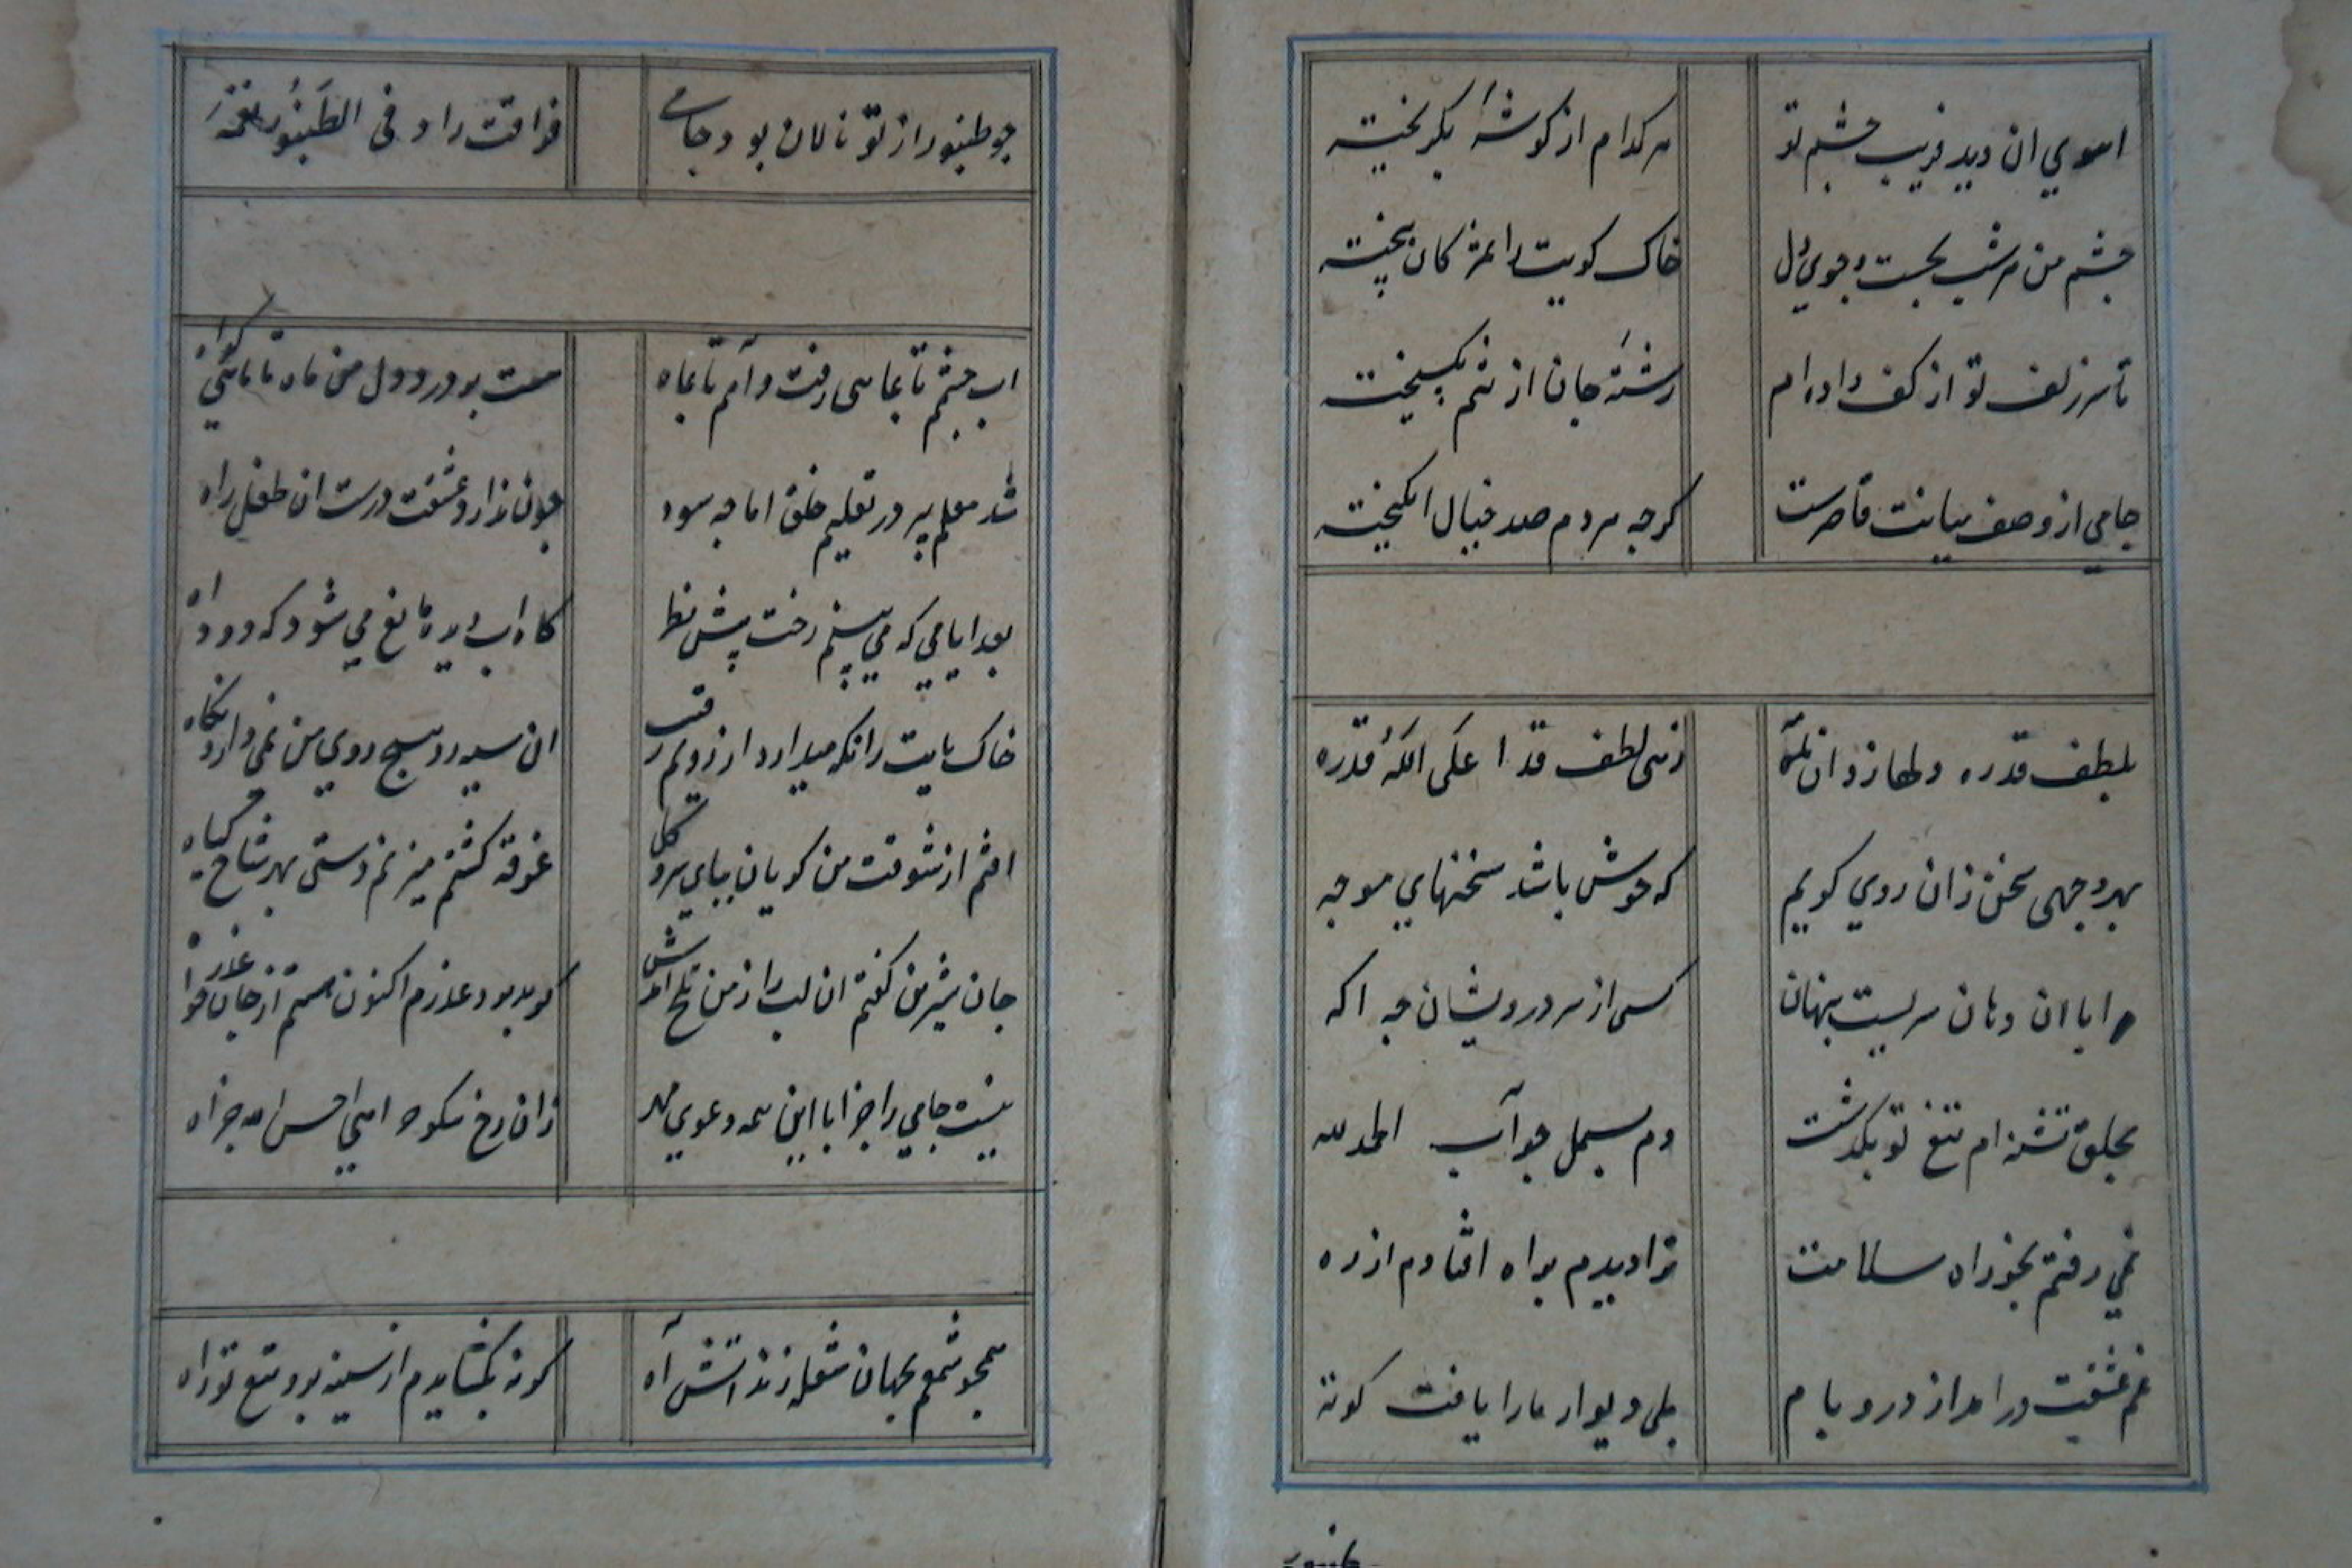 اهوي ان ديد فريب چشم تو
هر كدام از كوشهٔ بكريخته
چشم من هر شب بجست و جوي دل
خاك كويت را بمژكان بيخته
تا سر زلف تو از كف داده ام
رشتهٔ جان از تنم بكسيخته
جامي از وصف ميانت قاصرست
كرچه هر دم صد خيال انكيخته
بلطف قدره دلها زد ان
زهى لطف قد اعلى الله قدره
بهر وجهى سخن زان روي كويم
كه خوش باشد سخنهاي موجه
مرا با ان دهان سريست پنهان
كسى از سر درويشان چه اكه
بحلق تشنه ام تيغ تو بكذشت
دم بسمل چو آب الحمد لله
نمي رفتم بخود راه سلامت
ترا ديدم براه افتادم از ره
غم عشقت درامد از در و بام
بلى ديوار ما را يافت كوته
طنبور
چو طنبور از تو نالان بود جامي
فزادت را و فى الطَنبُور نغمه
اب چشم تا بماهى رفت و آهم تا بماه
هست بر درد دل من ماه تا ماهى كواه
شد معلم پير در تعليم خلق اما چه سود
چون ندارد عشقت درست ان طفل راه
بعد ايامي كه مي بينم رخت پيش نظر
كاه اب ديده مانع مي شود كه دود اه
خاك پايت را نكه ميدارد از رويم رقيب
ان سيه رو هيچ روي من نمي دارد نكاه
افتم از شوقت من كويان بپاي سرو و كل
غرقه كشتم ميزنم دستى بهر شاخ كياه
جان شيرين كفتم ان لب را ز من تلخ امدش
كر بد بود عذرم اكنون هستم از جان عذر خواه
نيست جامي را جزا با اين همه دعوي مهر
زان رخ نيكو جز اهي احسن الله جزاه
همچو شمعم بجهان شعله زند آتش آه
كر نه بكشايدم از سينه برد تيغ تو راه